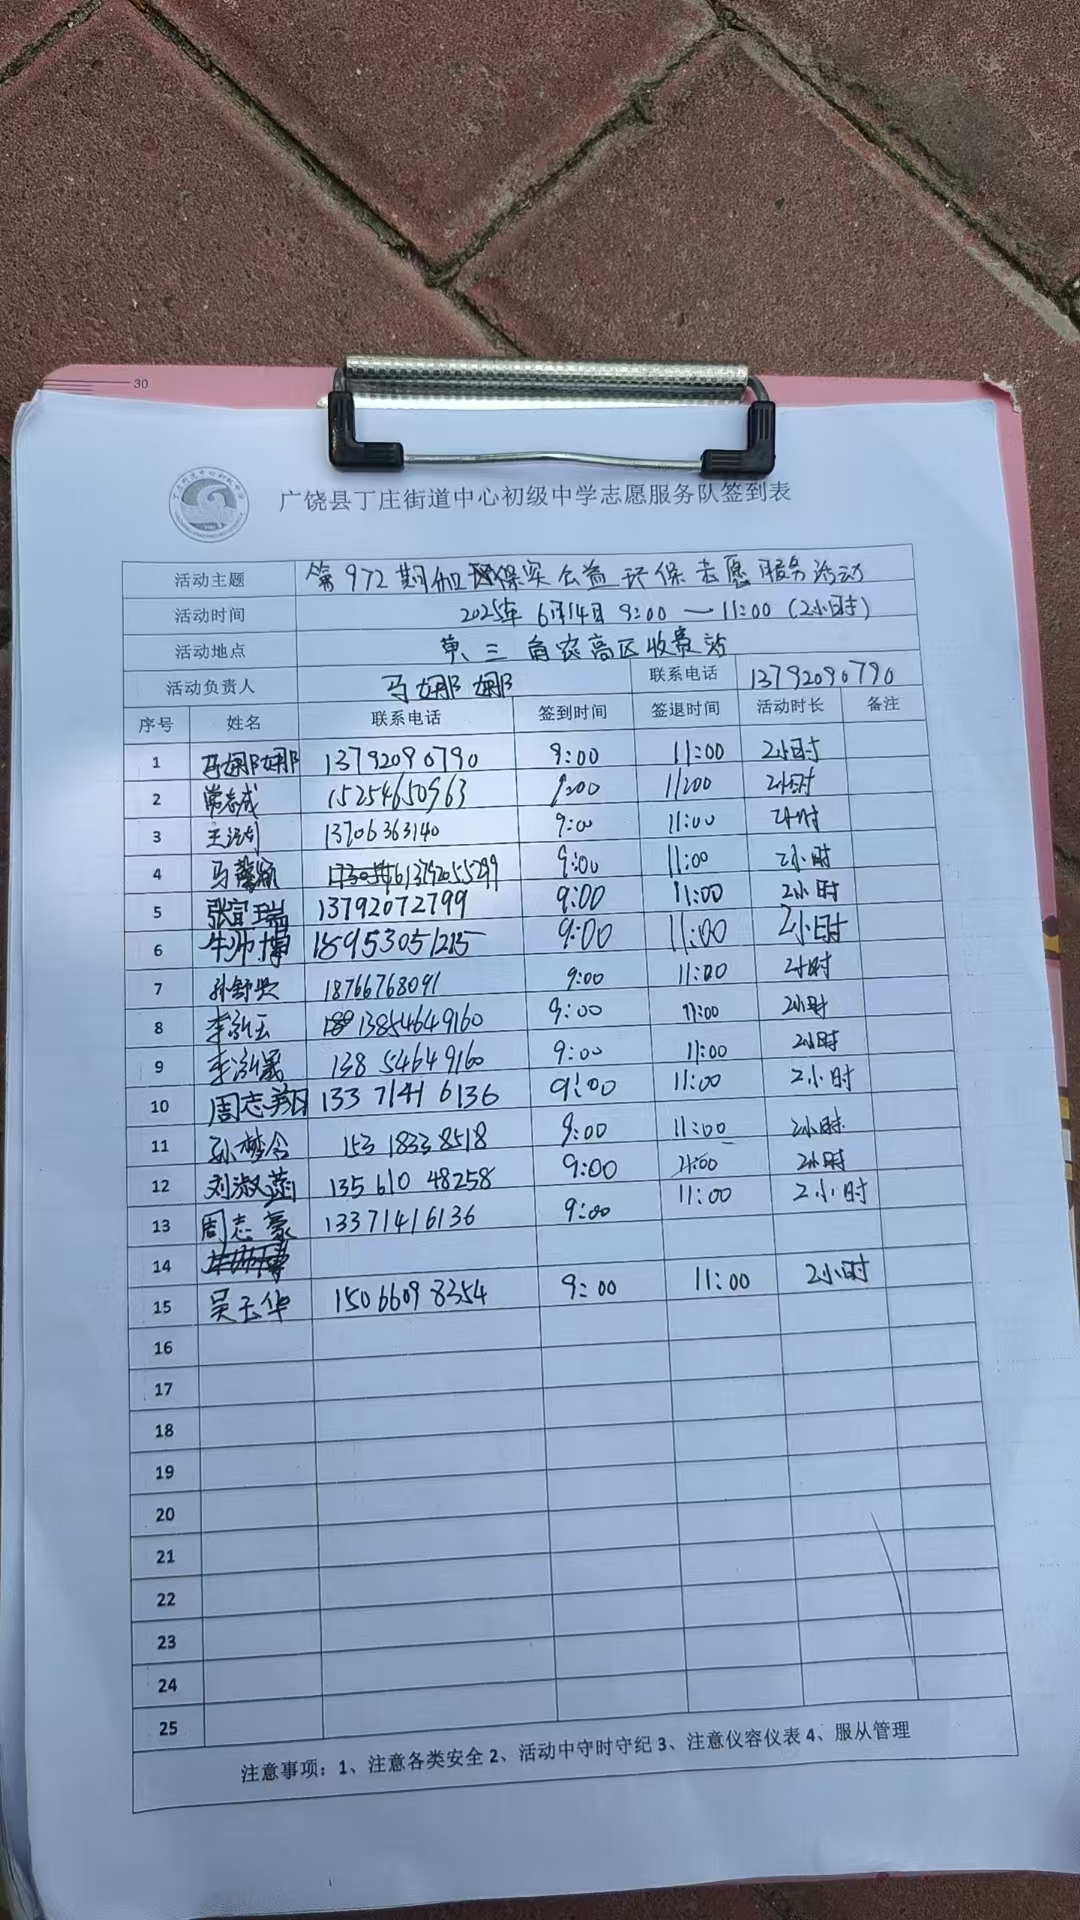 30
广饶县丁庄街道中心初级中学志愿服务队签到表
活动主题 第972期 保实公益环保志愿服务活动
活动时间 2025年6月14日 9:00—11:00(2小时)
活动地点 黄、三角农高区收费站
活动负责人 马娜娜 联系电话 13792090790
序号 姓名 联系电话 签到时间 签退时间 活动时长 备注
1 马娜娜 13792090790 9:00 11:00 2小时
2 常志成 15254650963 9:00 11:00 2小时
3 王 13706363140 9:00 11:00 2小时
4 马馨 13792055299 9:00 11:00 2小时
5 张宜瑞 13792072799 9:00 11:00 2小时
6 牛帅博 18953051215 9:00 11:00 2小时
7 孙舒 18766768091 9:00 11:00 2小时
8 李泓云 13854649160 9:00 11:00 2小时
9 李泓晟 13854649160 9:00 11:00 2小时
10 周志翔 133 7141 6136 9:00 11:00 2小时
11 孙梦令 153 1833 8518 9:00 11:00 2小时
12 刘淑菡 135 610 48258 9:00 11:00 2小时
13 周志豪 13371416136 9:00 11:00 2小时
14
15 吴玉华 150 6609 8354 9:00 11:00 2小时
16
17
18
19
20
21
22
23
24
25
注意事项：1、注意各类安全 2、活动中守时守纪 3、注意仪容仪表 4、服从管理